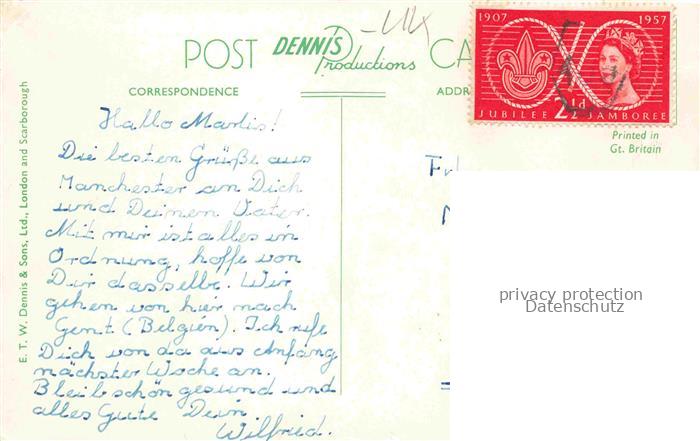 POST DENNIS CA
Productions
CORRESPONDENCE ADDR
1907 1957
2½d
JUBILEE JAMBOREE
Printed in
Gt. Britain
E. T. W. Dennis & Sons, Ltd., London and Scarborough
Hallo Marlis!
Die besten Grüße aus
Manchester an Dich
und Deinen Vater.
Mit mir ist alles in
Ordnung, hoffe von
Dir dasselbe. Wir
gehen von hier nach
Gent (Belgien). Ich rufe
Dich von da aus Anfang
nächster Woche an.
Bleib schön gesund und
alles Gute Dein
Wilfried.
privacy protection
Datenschutz